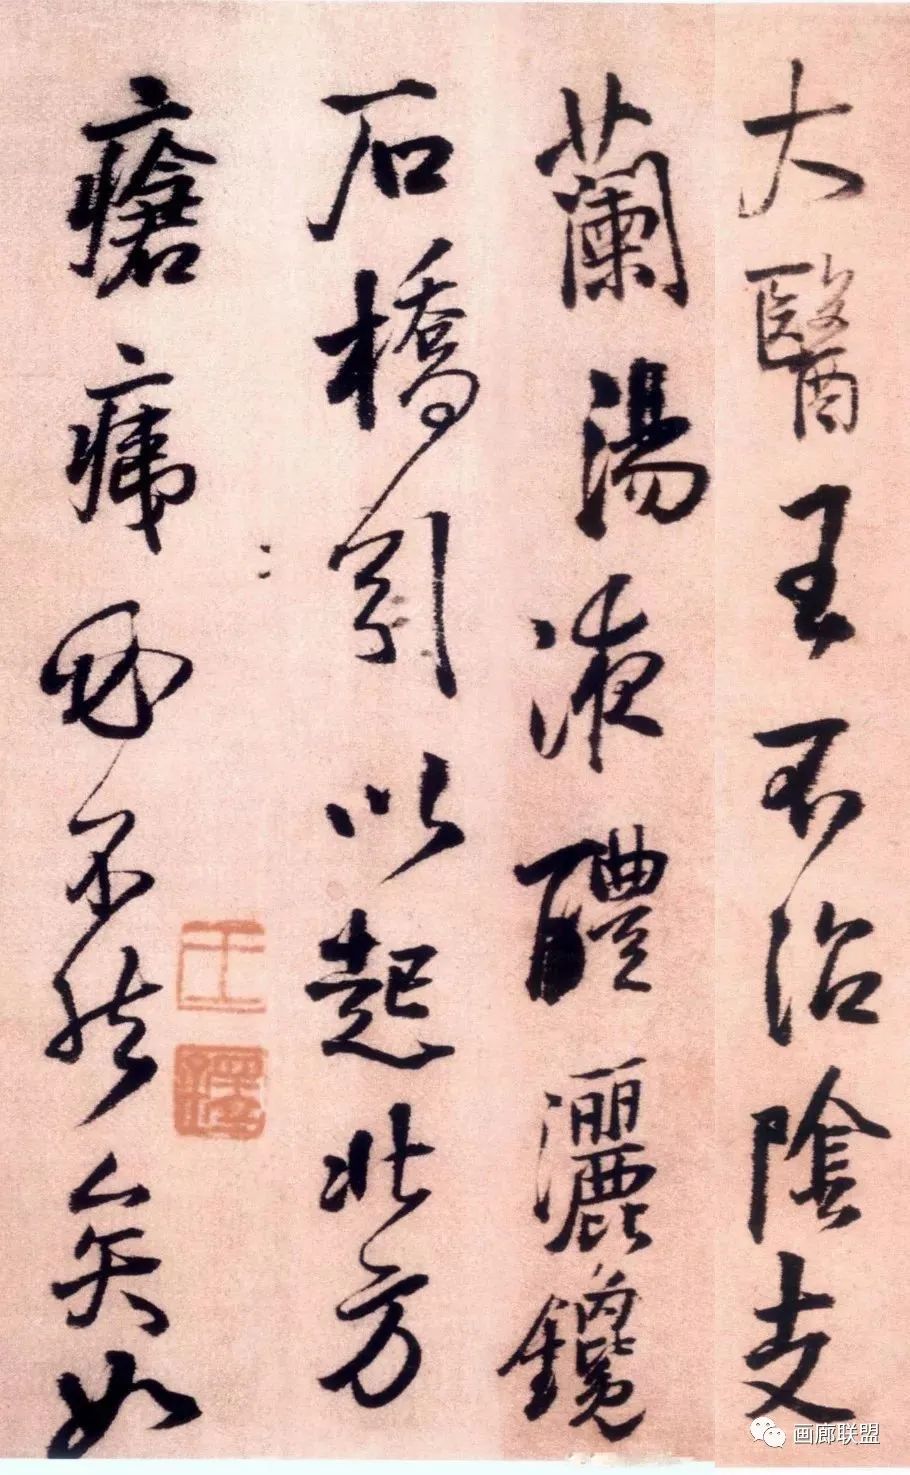 大醫王不治陰支
蘭湯液醴灑鑱
石橋引以起北方
瘡痏必不然矣如
王鐸
画廊联盟